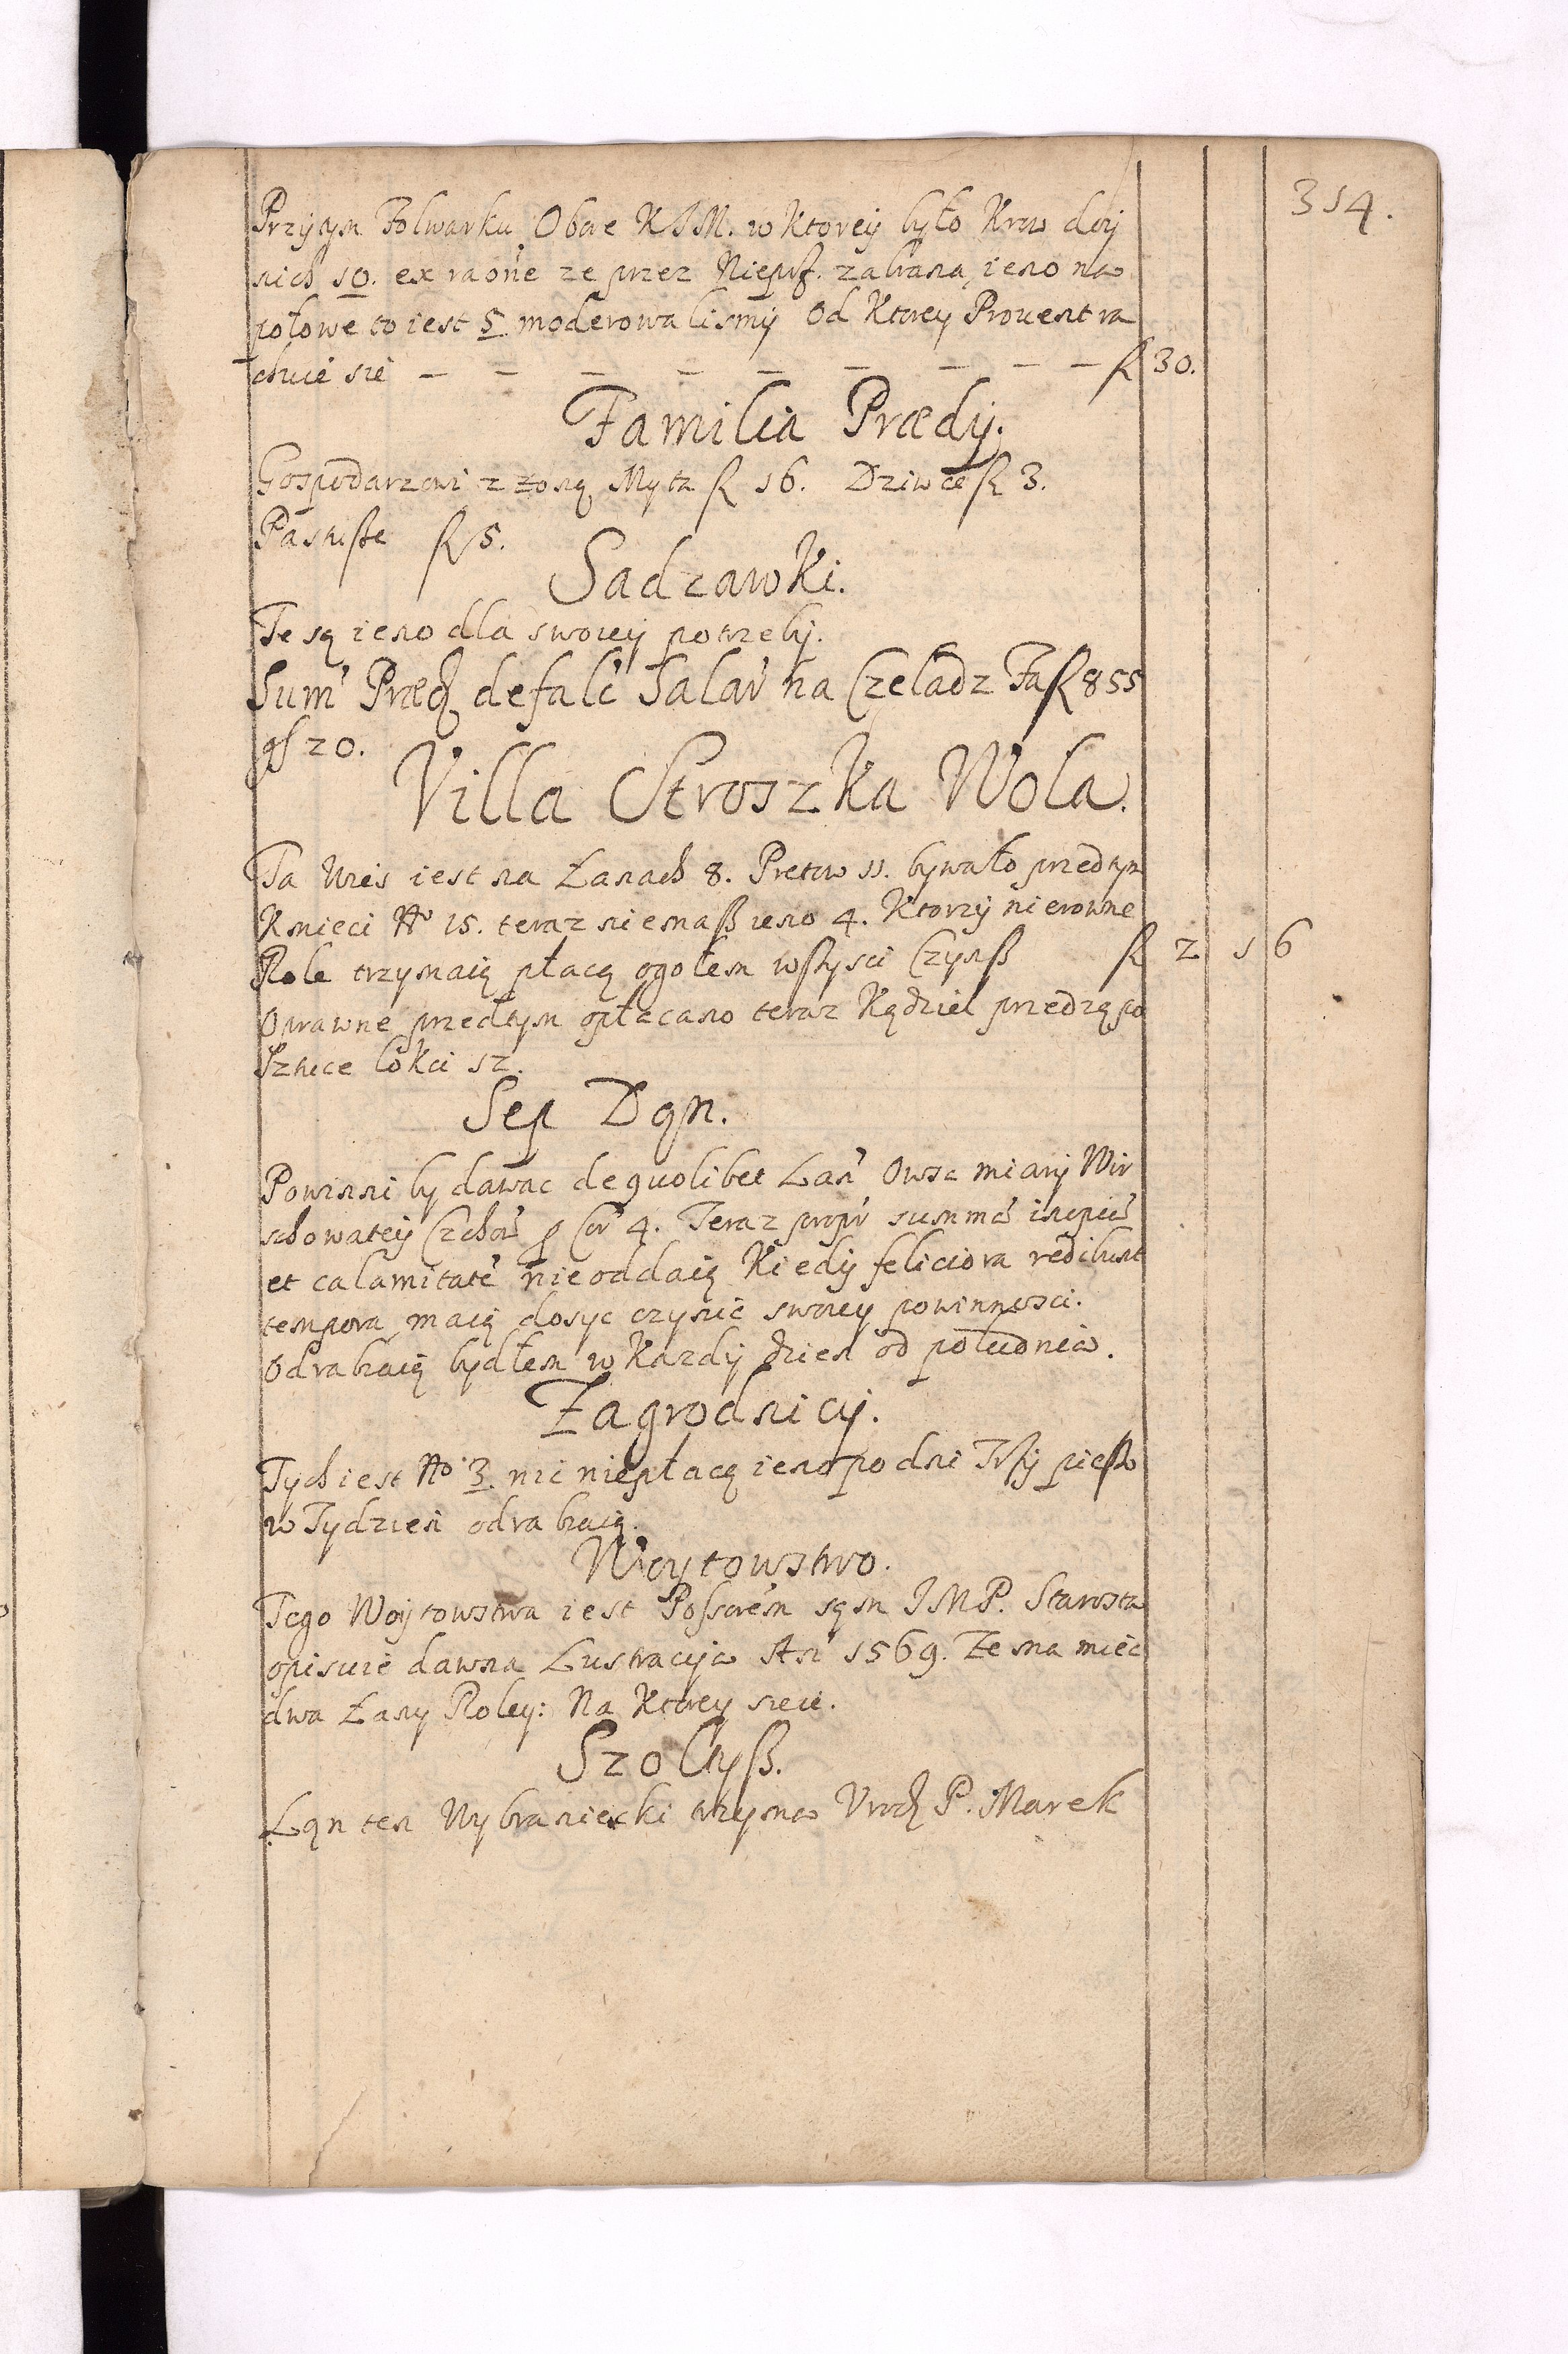 314.
Przytym Folwarku Obore KJM. w Ktorey było Krow doy
nich 10. ex raone ze przez Niepsz. zabrana, ieno na
połowe to iest 5 moderowalismy Od Ktorey Prouent ra
chuie sie — — — — — — — — — fl 30.
Familia Prædij.
Gospodarzowi z zoną Myta fl 16. Dziwce fl 3.
Pastusze fl 5.
Sadzawki.
Te są ieno dla swoiey potrzeby.
Sum' Præd defalc' Salar' na Czeladz Fa fl 855
gs 20.
Villa Stroszka Wola.
Ta Wies iest na Łanach 8. Pretow 11. bywało przedtym
Kmieci No 15. teraz niemasz ieno 4. Ktorzy nierowne
Role trzymaią płacą ogołem wszysci Czynsz fl 2 1 6
Oprawne przedtym opłacano teraz Kądziel przedzą po
Sztuce łokci 12.
Sep Dqn.
Powinni by dawac de quolibet Łan' Owsa miary Wir
zchowatey Czchow' Cor' 4. Teraz propr' summa' inopia'
et calamitate' nieoddaią Kiedy feliciora redibunt
tempora maią dosyc czynic swoiey powinnosci.
Odrabiaią bydłem w Kazdy dzien od południa.
Zagrodnicy.
Tych iest No 3. nic niepłacą ieno po dni Trzy pieszo
w Tydzien odrabiaią.
Woytowstwo.
Tego Woytowstwa iest Possorem sąm JMP. Starosta
opisuie dawna Lustracyia An' 1569. Ze ma miec
dwa Łany Roley: Na Ktorey sieie.
Szołtysz.
Łąn ten Wybraniecki trzyma Urodz P. Marek